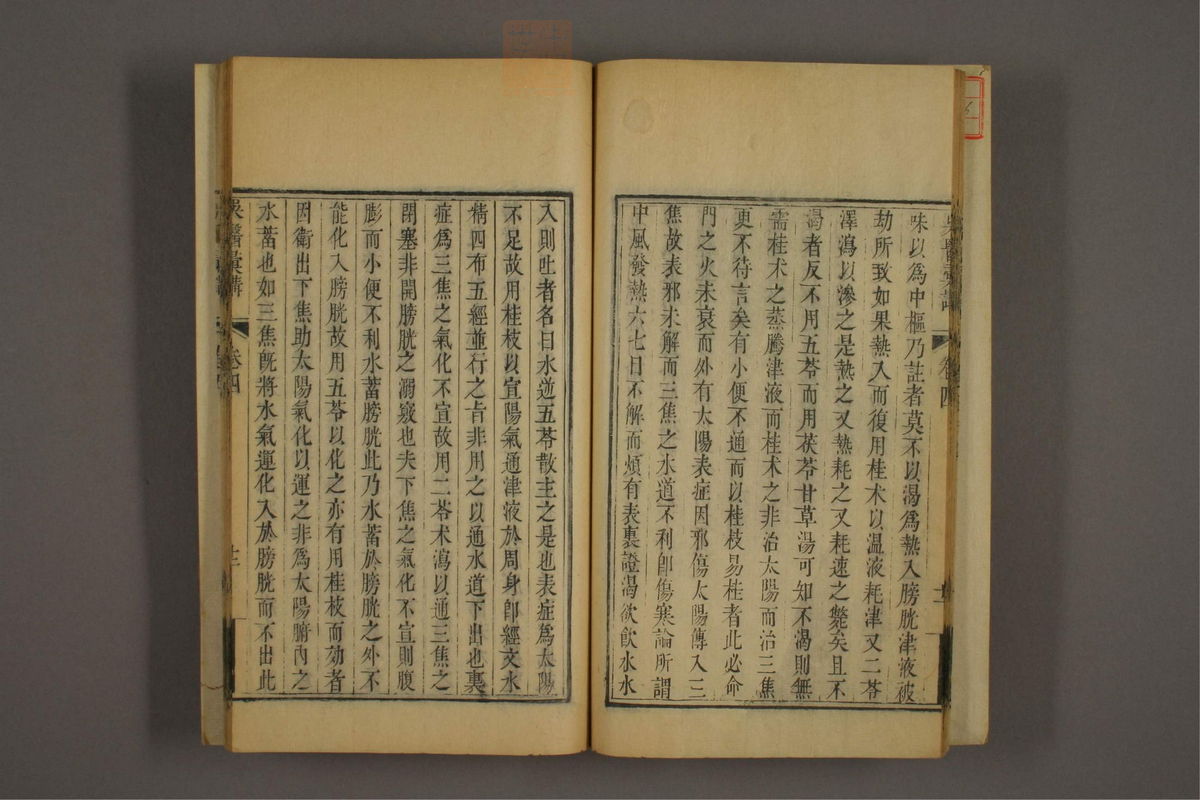 味以爲中樞乃註者莫不以渴爲熱入膀胱津液被
劫所致如果熱入而復用桂术以温液耗津又二苓
澤瀉以滲之是熱之又熱耗之又耗速之斃矣且不
渴者反不用五苓而用茯苓甘草湯可知不渴則無
需桂术之蒸騰津液而桂术之非治太陽而治三焦
更不待言矣有小便不通而以桂枝易桂者此必命
門之火未衰而外有太陽表症因邪傷太陽傳入三
焦故表邪未解而三焦之水道不利卽傷寒論所謂
中風發熱六七日不解而煩有表裏證渴欲飮水水
入則吐者名曰水逆五苓散主之是也表症爲太陽
不足故用桂枝以宣陽氣通津液於周身卽經文水
精四布五經並行之旨非用之以通水道下出也裏
症爲三焦之氣化不宣故用二苓术瀉以通三焦之
閉塞非開膀胱之溺竅也夫下焦之氣化不宣則腹
膨而小便不利水蓄膀胱此乃水蓄於膀胱之外不
能化入膀胱故用五苓以化之亦有用桂枝而効者
因衛出下焦助太陽氣化以運之非爲太陽腑內之
水蓄也如三焦旣將水氣運化入於膀胱而不出此
吳醫彙講
卷四